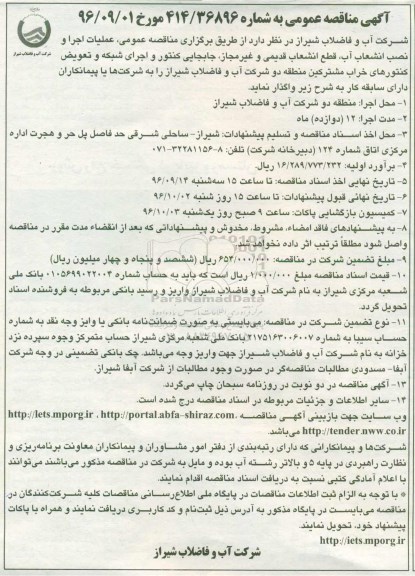 آگهی مناقصه عمومی به شماره ۴۱۴/۳۶۸۹۶ مورخ ۹۶/۰۹/۰۱
شرکت آب و فاضلاب شیراز
شرکت آب و فاضلاب شیراز در نظر دارد از طریق برگزاری مناقصه عمومی، عملیات اجرا و
نصب انشعاب آب، قطع انشعاب قدیمی و غیرمجاز، جابجایی کنتور و اجرای شبکه و تعویض
کنتورهای خراب مشترکین منطقه دو شرکت آب و فاضلاب شیراز را به شرکت‌ها یا پیمانکاران
دارای سابقه کار به شرح زیر واگذار نماید.
۱- محل اجرا: منطقه دو شرکت آب و فاضلاب شیراز
۲- مدت اجرا: ۱۲ (دوازده) ماه
۳- محل اخذ اسناد مناقصه و تسلیم پیشنهادات: شیراز- ساحلی شرقی حد فاصل پل حر و هجرت اداره
مرکزی اتاق شماره ۱۲۴ (دبیرخانه شرکت) تلفن: ۸-۳۲۲۸۱۱۵۶-۰۷۱
۴- برآورد اولیه: ۱۶/۲۸۹/۷۷۳/۲۳۲ ریال.
۵- تاریخ نهایی اخذ اسناد مناقصه: تا ساعت ۱۵ سه‌شنبه ۹۶/۰۹/۱۴
۶- تاریخ نهائی قبول پیشنهادات: تا ساعت ۱۵ روز شنبه ۹۶/۱۰/۰۲
۷- کمیسیون بازگشایی پاکات: ساعت ۹ صبح روز یکشنبه ۹۶/۱۰/۰۳
۸- به پیشنهادهای فاقد امضاء، مشروط، مخدوش و پیشنهاداتی که بعد از انقضاء مدت مقرر در مناقصه
واصل شود مطلقاً ترتیب اثر داده نخواهد شد.
۹- مبلغ تضمین شرکت در مناقصه: ۶۵۴/۰۰۰/۰۰۰ ریال (ششصد و پنجاه و چهار میلیون ریال)
۱۰- قیمت اسناد مناقصه مبلغ ۱/۰۰۰/۰۰۰ ریال است که باید به حساب شماره ۰۱۰۵۶۹۹۰۲۲۰۰۴ بانک ملی
شعبه مرکزی شیراز به نام شرکت آب و فاضلاب شیراز واریز و رسید بانکی مربوطه به فروشنده اسناد
تحویل گردد.
۱۱- نوع تضمین شرکت در مناقصه: می‌بایستی به صورت ضمانت‌نامه بانکی یا واریز وجه نقد به شماره
حساب سیبا به شماره ۲۱۷۵۱۶۳۰۰۶۰۰۷ بانک ملی شعبه مرکزی شیراز حساب متمرکز وجوه سپرده نزد
خزانه به نام شرکت آب و فاضلاب شیراز جهت واریز وجه می‌باشد. چک بانکی تضمینی در وجه شرکت
آبفا- مسدودی مطالبات مناقصه‌گر در صورت وجود مطالبات از شرکت آبفا شیراز.
۱۳- آگهی مناقصه در دو نوبت در روزنامه سبحان چاپ می‌گردد.
۱۴- سایر اطلاعات و جزئیات مربوطه در اسناد مناقصه درج شده است.
وب سایت جهت بازبینی آگهی مناقصه http://iets.mporg.ir ، http://portal.abfa-shiraz.com،
http://tender.nww.co.ir می‌باشد.
شرکت‌ها و پیمانکارانی که دارای رتبه‌بندی از دفتر امور مشاوران و پیمانکاران معاونت برنامه‌ریزی و
نظارت راهبردی در پایه ۵ و بالاتر رشته آب بوده و مایل به شرکت در مناقصه مذکور می‌باشند می‌توانند
با اعلام آمادگی کتبی نسبت به دریافت اسناد مناقصه اقدام نمایند.
* با توجه به الزام ثبت اطلاعات مناقصات در پایگاه ملی اطلاع‌رسانی مناقصات کلیه شرکت‌کنندگان در
مناقصه می‌بایست در پایگاه مذکور به آدرس ذیل ثبت‌نام و کد کاربری دریافت نمایند و همراه با پاکات
پیشنهاد خود، تحویل نمایند.
http://iets.mporg.ir
شرکت آب و فاضلاب شیراز